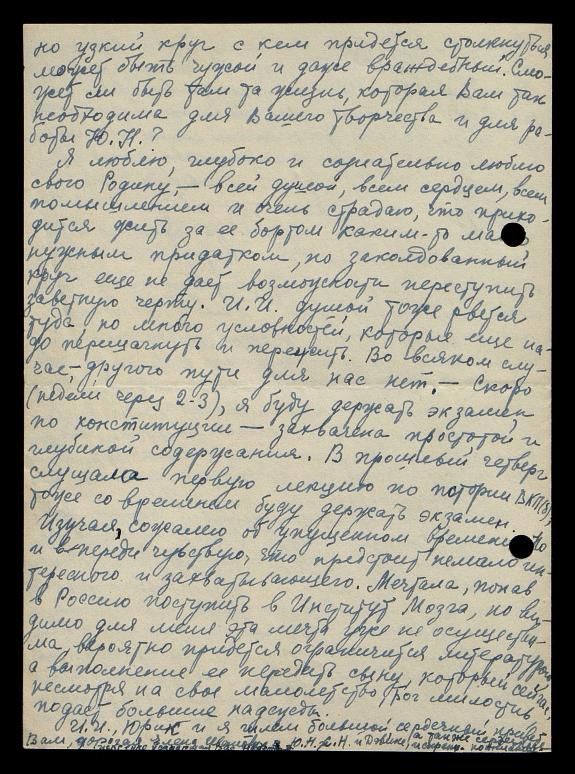 но узкий круг с кем придется столкнуться
может быть чужой и даже враждебный. Смо-
жет ли быть там та жизнь, которая Вам так
необходима для Вашего творчества и для ра-
боты Ю.Н.?
Я люблю, глубоко и сознательно люблю
свою Родину, — всей душой, всем сердцем, всем
помышлением и очень страдаю, что прихо-
дится жить за ее бортом каким-то мало
нужным придатком, но заколдованный
круг еще не дает возможности переступить
заветную черту. И.И. душой тоже рвется
туда, но много условностей, которые еще на-
до перешагнуть и пережить. Во всяком слу-
чае - другого пути для нас нет. — Скоро
(недели через 2-3), я буду держать экзамен
по конституции — захвачена простотой и
глубиной содержания. В прошлый четверг
слушала первую лекцию по истории ВКП(б),
тоже со временем буду держать экзамен. Но
Изучая, сожалею об упущенном времени
и впереди чувствую, что предстоит немало ин-
тересного и захватывающего. Мечтала, попав
в Россию поступить в Институт Мозга, но ви-
димо для меня эта мечта уже не осуществи-
ма, вероятно придется ограничится литературой,
а выполнение ее передать сыну, который сейчас,
несмотря на свое малолетство, Бог милостив
подает большие надежды.
И.И., Юрик и я шлем большой сердечный привет
Вам, дорогая Ю.Н. и Дэвике, а также